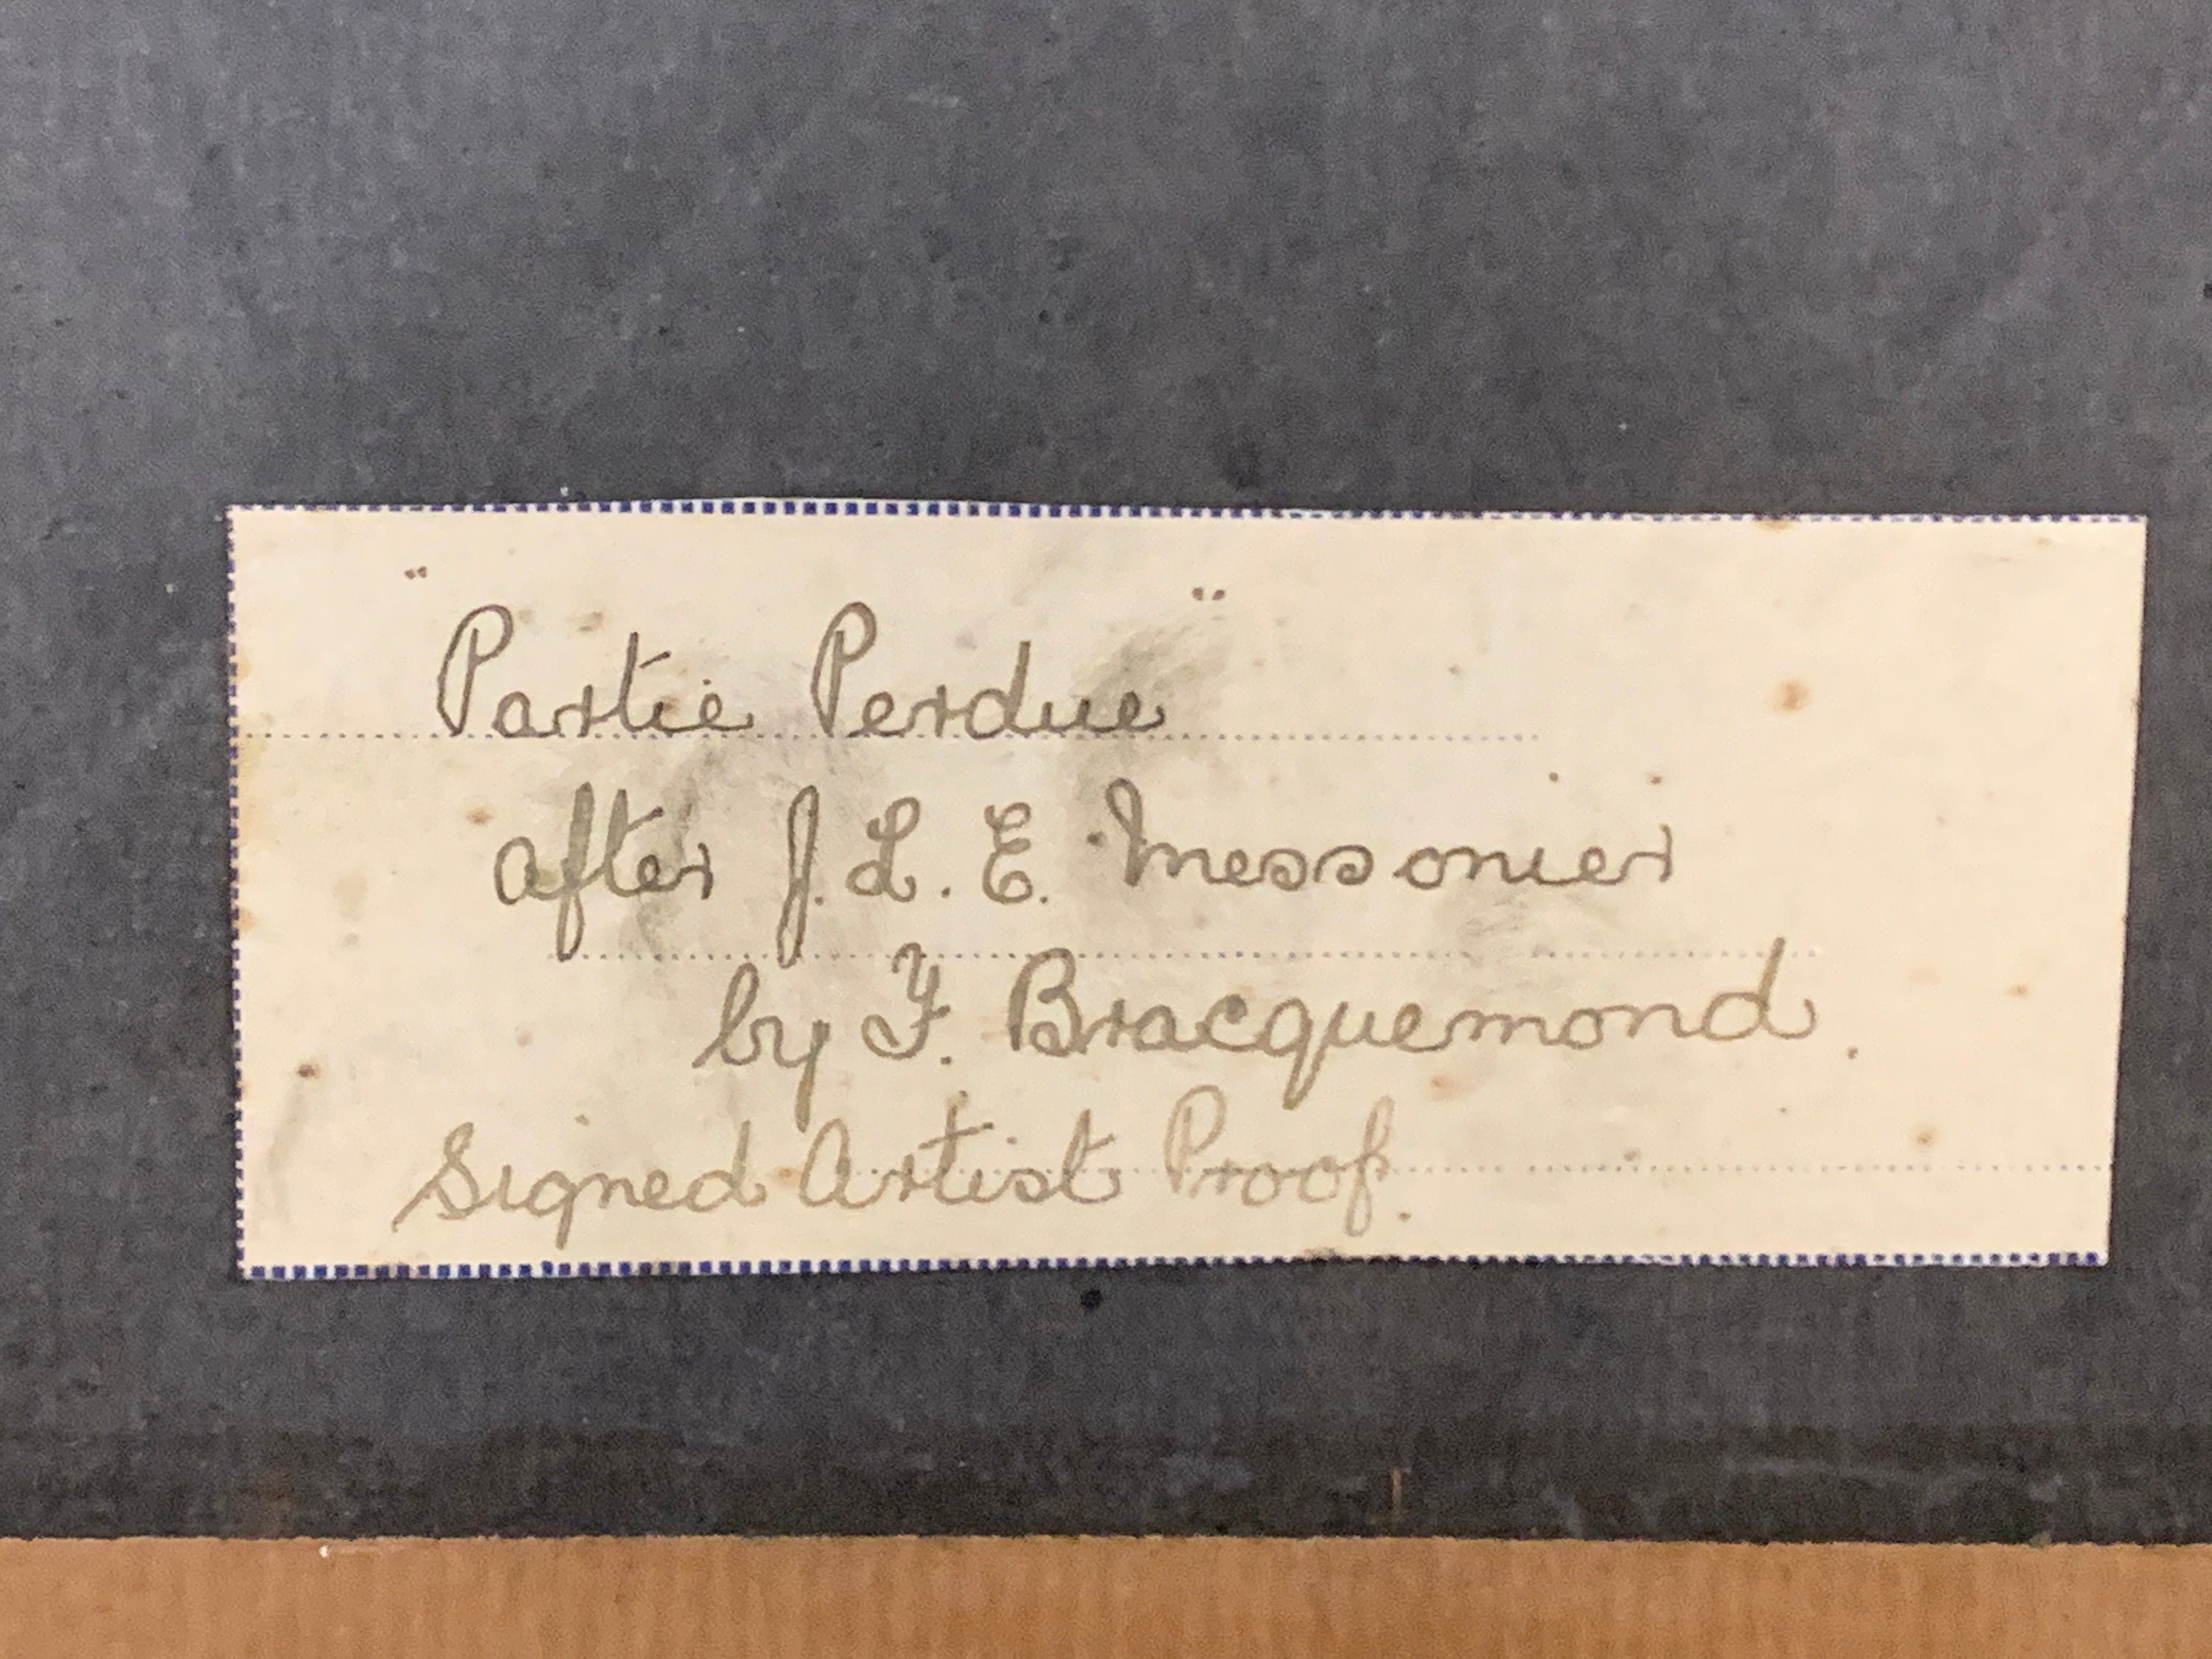 "Partie Perdue"
after J. L. E. Messonier
by F. Bracquemond.
Signed Artist Proof.